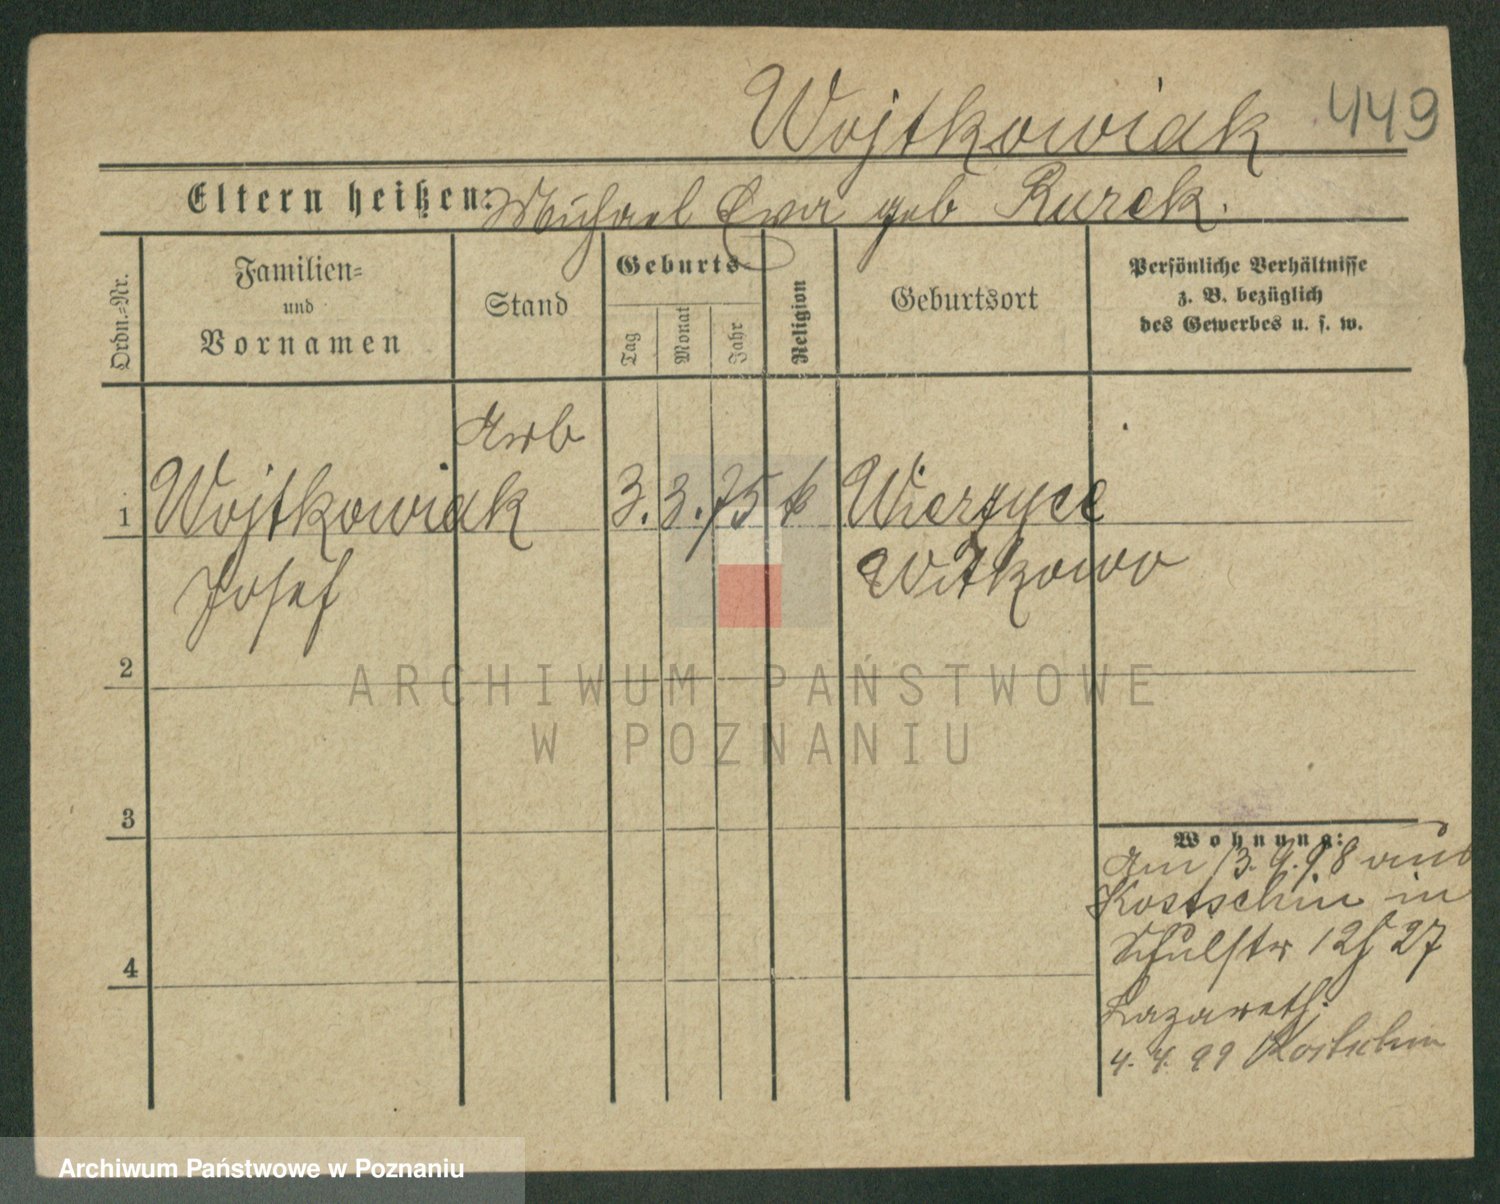 Wojtkowiak 449
Eltern heißen: Michael Ewa geb Kurek.
Ordn.=Nr.
Familien=
und
Vornamen
Stand
Geburts
Tag
Monat
Jahr
Religion
Geburtsort
Persönliche Verhältnisse
z. B. bezüglich
des Gewerbes u. s. w.
Arb
1 Wojtkowiak 3. 3. 75 k Wierzyce
Josef Witkowo
2
ARCHIWUM PAŃSTWOWE
W POZNANIU
3
Wohnung:
Am 13. 9. 98 aus
Kostschin in
Schulstr 12/ 27
4
Lazareth.
4. 4. 99 Kostschin
Archiwum Państwowe w Poznaniu